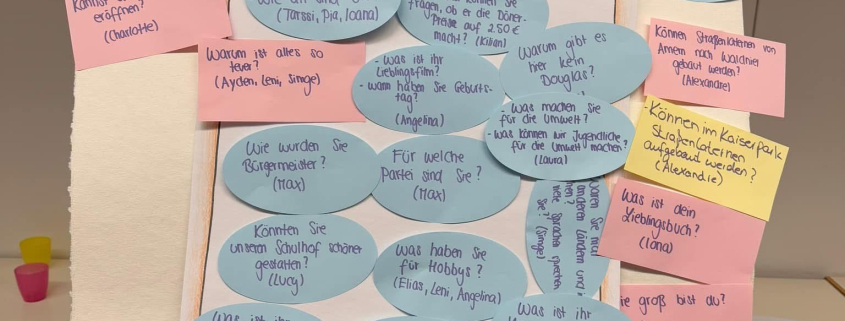 eröffnen?
(Charlotte)
Warum ist alles so
teuer?
(Ayden, Leni, Simge)
(Tarssi, Pia, Ioana)
fragen, ob er die Döner-
Preise auf 2.50€
macht? (Kilian)
- Was ist ihr
Lieblingsfilm?
- wann haben Sie Geburts-
tag?
(Angelina)
Warum gibt es
hier kein
Douglas?
- Was machen Sie
für die Umwelt?
- Was können wir Jugendliche
für die Umwelt machen?
(Laura)
Wie wurden Sie
Bürgermeister?
(Max)
Für welche
Partei sind Sie?
(Max)
Könnten Sie
unseren Schulhof schöner
gestalten?
(Lucy)
Was haben Sie
für Hobbys?
(Elias, Leni, Angelina)
anderen Ländern und
viele Sprachen sprechen
Sie? (Simge)
Was ist ihr
Was ist ihr
Können Straßenlaternen von
Amern nach Waldniel
gebaut werden?
(Alexandre)
- Können im Kaiserpark
Straßenlaternen
aufgebaut werden?
(Alexandre)
Was ist dein
Lieblingsbuch?
(Iona)
groß bist du?